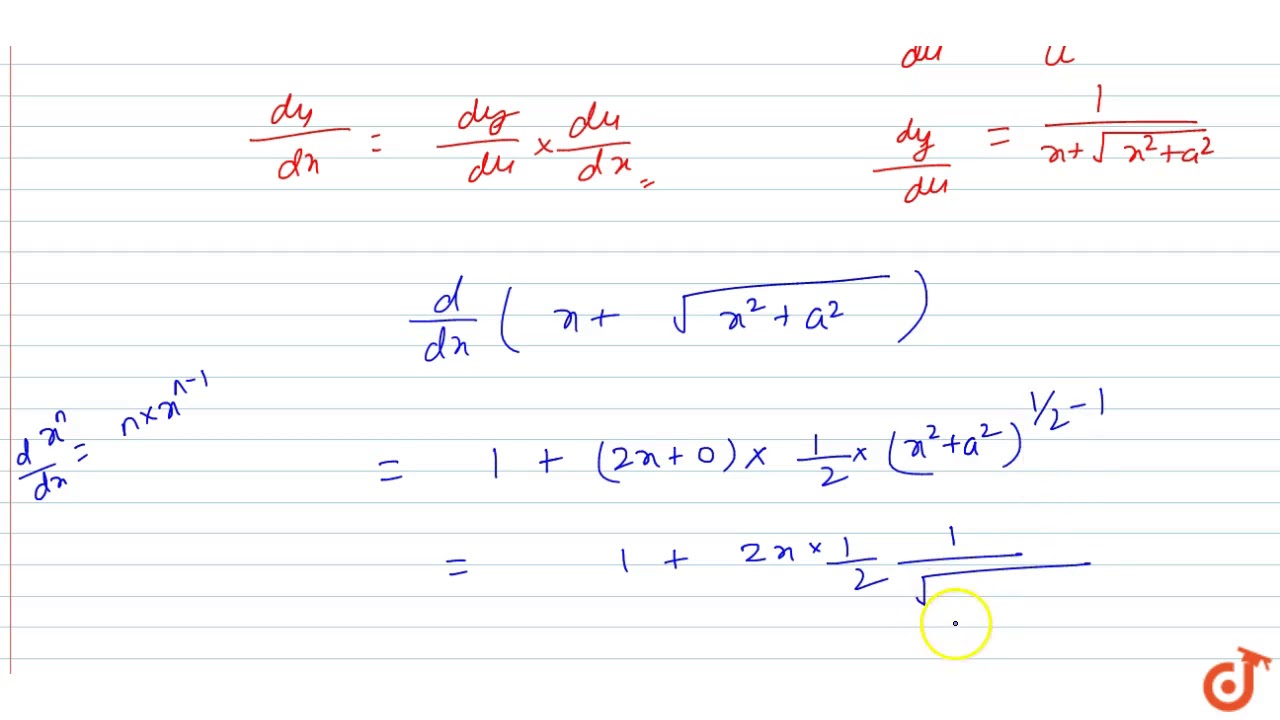 du u
dy/dx = dy/du × du/dx
dy/du = 1/(x+√(x²+a²))
d/dx ( x + √(x² + a²) )
d/dx xⁿ = n×xⁿ⁻¹
= 1 + (2x+0) × 1/2 × (x²+a²)^(1/2 - 1)
= 1 + 2x × 1/2 1/√